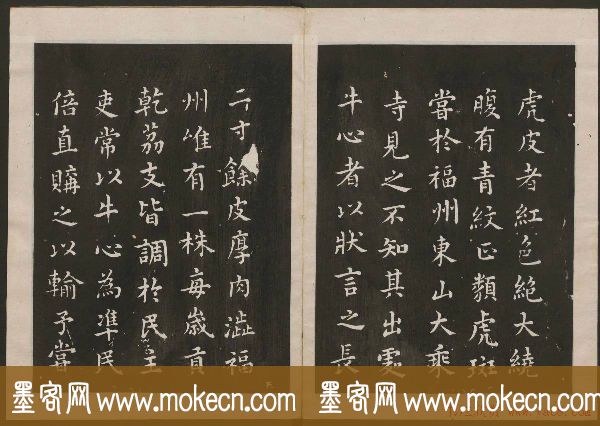 虎皮者紅色絕大繞
腹有青紋正類虎斑
嘗於福州東山大乘
寺見之不知其出處
牛心者以狀言之長
二寸餘皮厚肉澁福
州唯有一株每歲貢
乾荔支皆調於民主
吏常以牛心為準民
倍直購之以輸予嘗
墨客网 www.mokecn.com 墨客网 www.mokecn.com